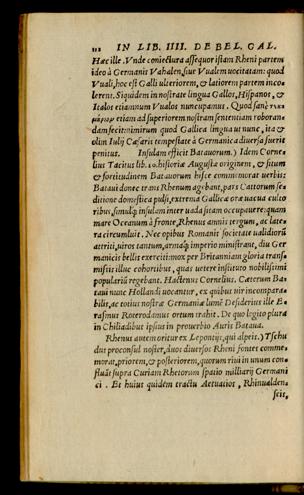 112 IN LIB. IIII. DE BEL. GAL.
Hæc ille. Vnde coniectura assequor istiam Rheni partem
ideo à Germanis Vahalen, siue Vualem uocitatam: quod
Vuali, hoc est Galli ulteriorem, & latiorem partem inco-
lerent. Siquidem in nostrate lingua Gallos, Hispanos, &
Italos etiamnum Vualos nuncupamus. Quod sanè
etiam ad superiorem nostram sententiam roboran-
dam facit: nimirum quod Gallica lingua ut nunc, ita &
olim Iulij Cæsaris tempestate à Germanica diuersa fuerit
penitus. Insulam efficit Batauorum.) Idem Corne-
lius Tacitus lib. 20. historiæ Augustæ originem, & situm
& fortitudinem Batauorum hisce commemorat uerbis:
Bataui donec trans Rhenum agebant, pars Cattorum se-
ditione domestica pulsi, extrema Gallicæ oræ uacua culto
ribus, simulq; insulam inter uada sitam occupauere: quam
mare Oceanum à fronte, Rhenus amnis tergum, ac late-
ra circumluit. Nec opibus Romanis societate ualidiorū
attriti, uiros tantum, armaq; imperio ministrant, diu Ger
manicis bellis exerciti: mox per Britanniam gloria trans-
missis illuc cohortibus, quas uetere instituto nobilissimi
popularium regebant. Hactenus Cornelius. Cæterum Ba
taui nunc Hollandi uocantur, ex quibus uir incompara-
bilis, ac totius nostræ Germaniæ lumē Desiderius ille E-
rasmus Roterodamus ortum trahit. De quo legito plura
in Chiliadibus ipsius in prouerbio Auris Bataua.
Rhenus autem oritur ex Lepontijs, qui alpeis.) Tschu
dus proconsul noster, duos diuersos Rheni fontes comme
morat, priorem, & posteriorem, quorum riui in unum con-
fluāt supra Curiam Rhetorum spatio milliarij Germani
ci. Et huius quidem tractu Aetuatios, Rhinualden
seis,